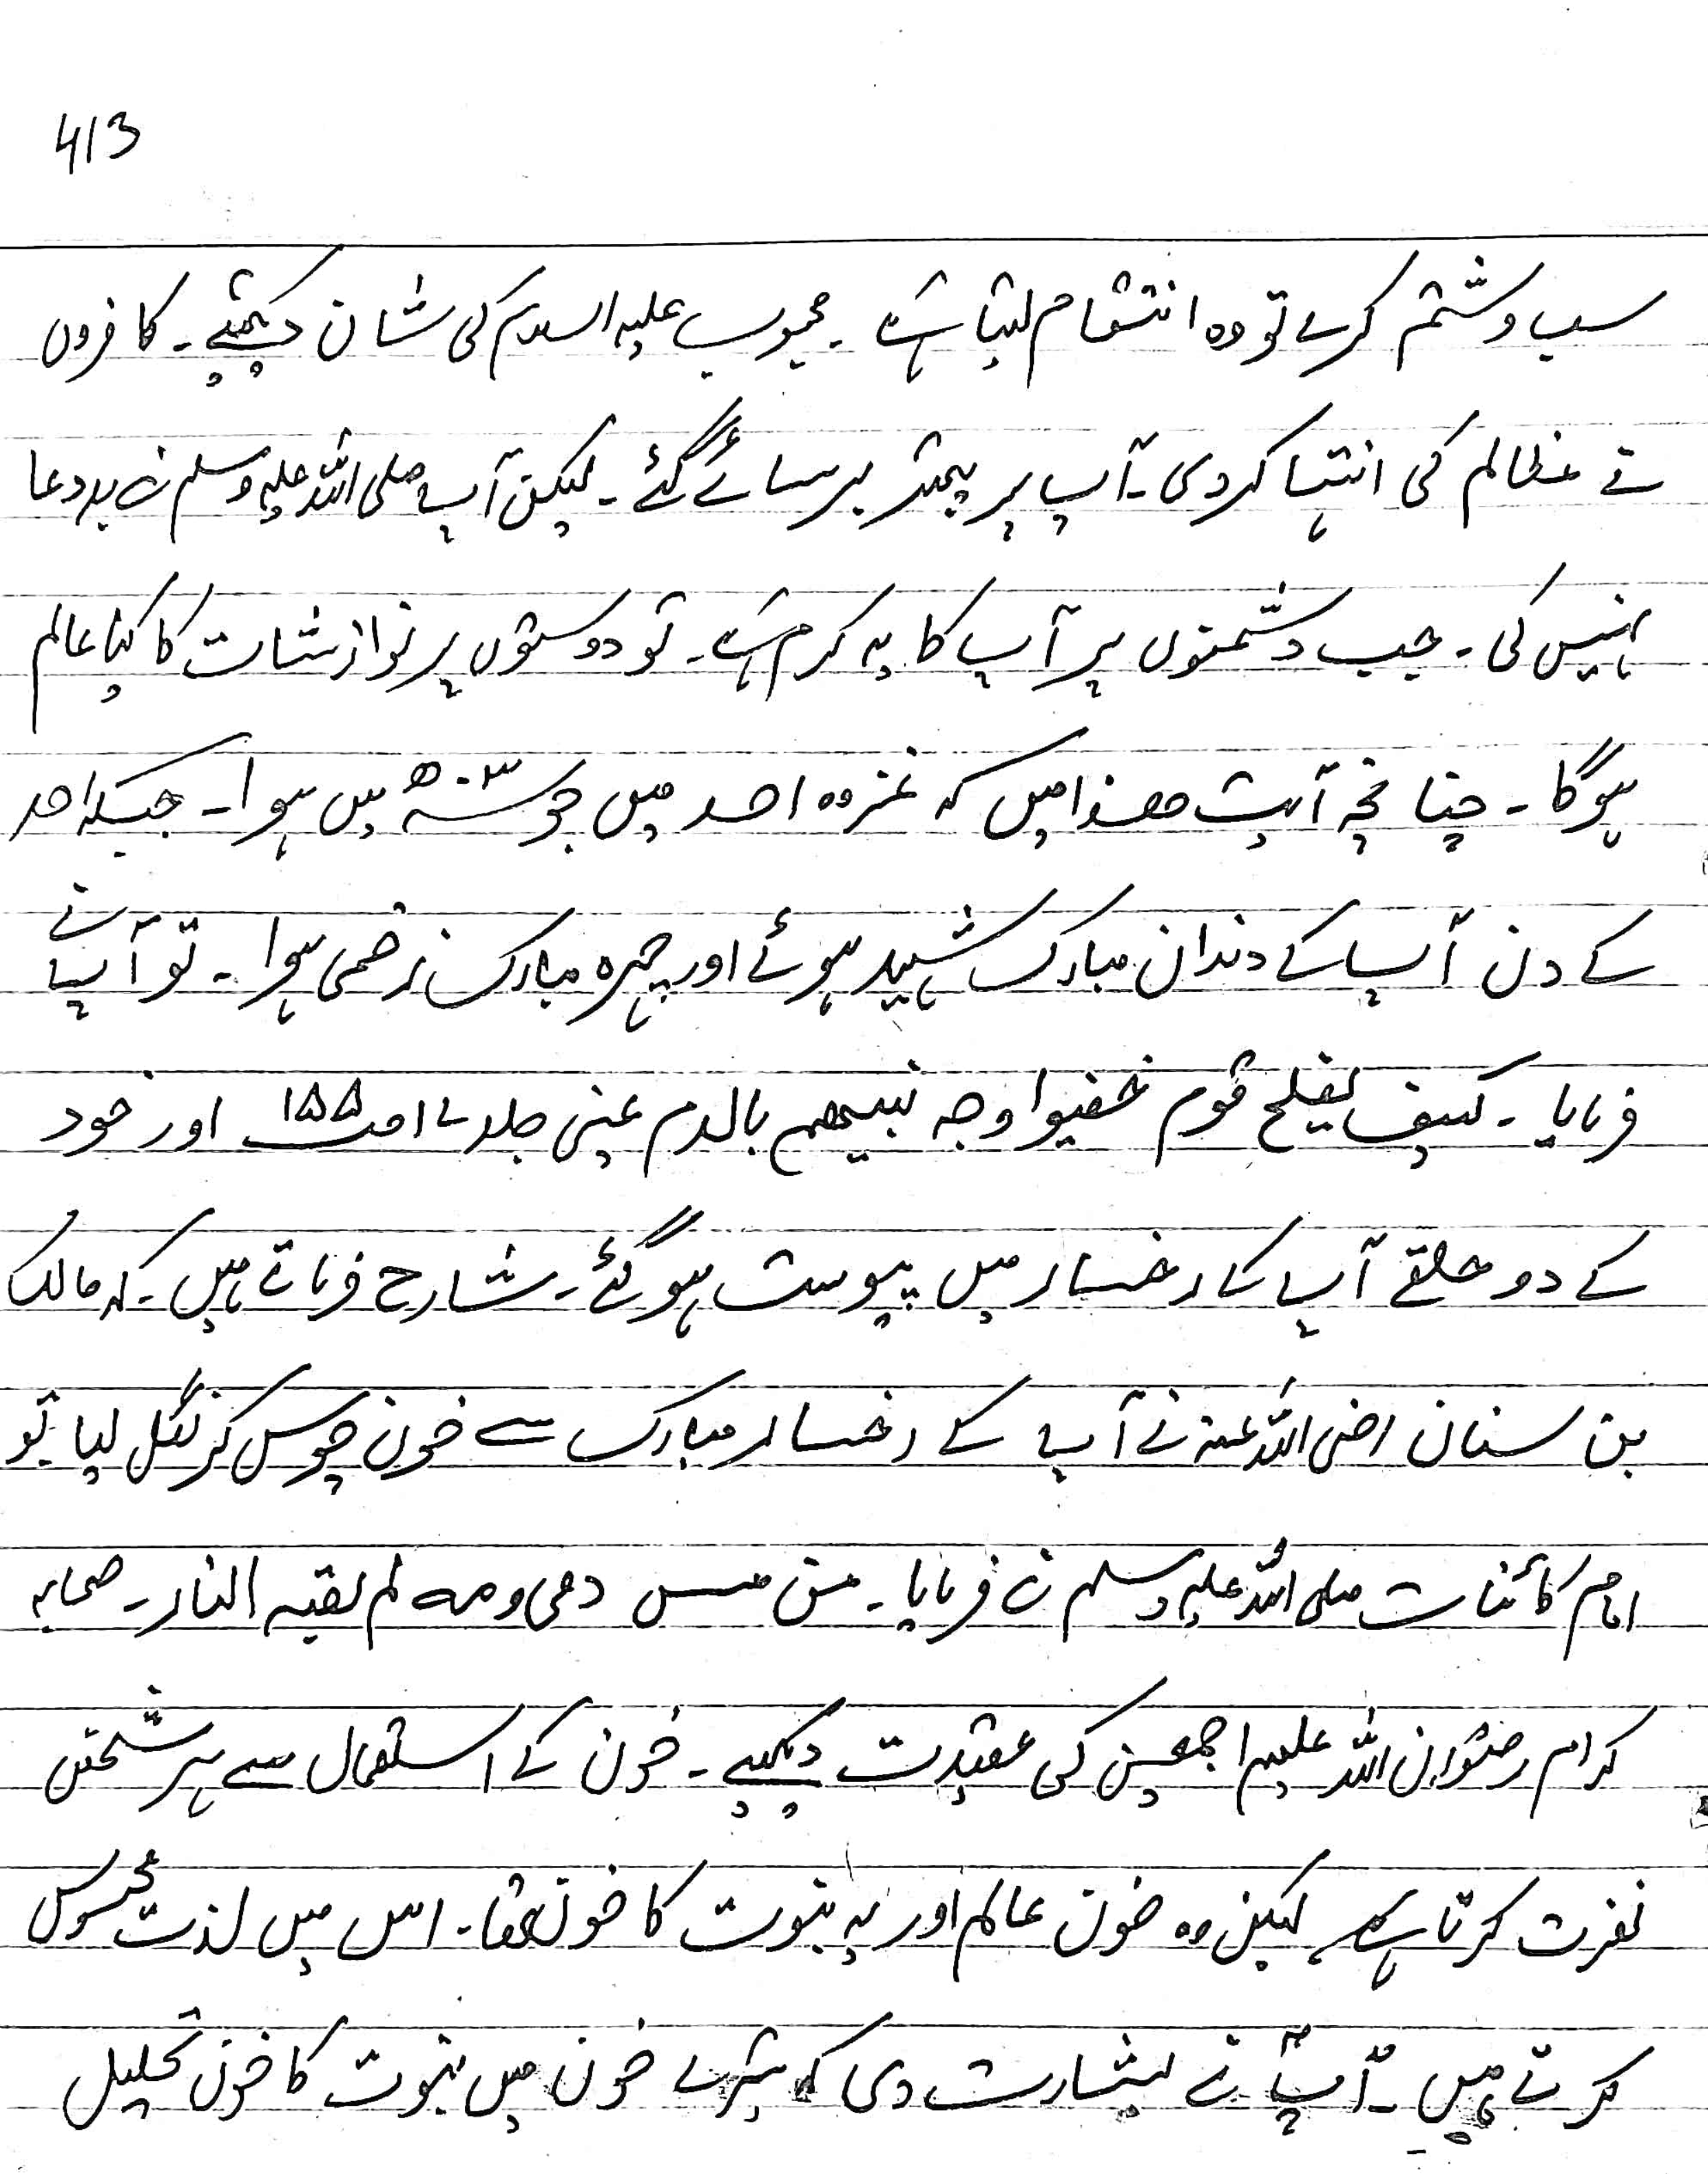 413
سب و شتم کرے تو وہ انتقام لیتا ہے۔ محبوب علیہ السلام کی شان دیکھئے۔ کافروں
نے مظالم کی انتہا کردی۔ آپ پر پتھر برسائے گئے۔ لیکن آپ صلی اللہ علیہ وسلم نے بددعا
نہیں کی۔ جب دشمنوں پر آپ کا یہ کرم ہے۔ تو دوستوں پر نوازشات کا کیا عالم
ہوگا۔ چنانچہ آیت ھذا میں کہ غزوہ احد میں جو سنہ ۳ھ میں ہوا۔ جبکہ احد
کے دن آپ کے دندان مبارک شہید ہوئے اور چہرہ مبارک زخمی ہوا۔ تو آپ نے
فرمایا۔ کیف یفلح قوم خضبوا وجہ نبیھم بالدم عینی جلد ۷ ۱۵۵ اور خود
کے دو حلقے آپ کا رخسار میں پیوست ہوگئے۔ شارح فرماتے ہیں۔ کہ مالک
بن سنان رضی اللہ عنہ نے آپ کے رخسار مبارک سے خون چوس کر نگل لیا۔ تو
امام کائنات صلی اللہ علیہ وسلم نے فرمایا۔ من مس دمی ومہ لم لقیہ النار۔ صحابہ
کرام رضوان اللہ علیہم اجمعین کی عقیدت دیکھیے۔ خون کے استعمال سے ہر شخص
نفرت کرتا ہے۔ لیکن وہ خون عالم اور یہ نبوت کا خون تھا۔ اس میں لذت محسوس
کرتے ہیں۔ آپ نے بشارت دی کہ تیرے خون میں نبوت کا خون تحلیل